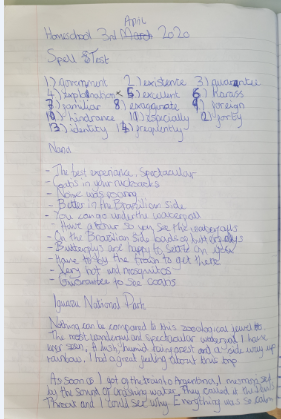 April
Homeschool 3rd March 2020
Spell Test
1) government 2) existence 3) guarantee
4) explanation 5) excellent 6) harass
7) familiar 8) exaggerate 9) foreign
10) hindrance 11) especially 12) forty
13) identity 14) frequently
Nana
- The best experience, Spectacular
- Coatis in your rucksacks
- Nana was
- Better in the Brazilian side
- You can go under the waterfall
- Have a tour so you see the waterfalls
- On the Brazilian side loads of butterflies
- Butterflys are happy to settle on you
- Have to by the train to get there
- Very hot and mosquitos
- Guarantee to see coatis
Iguassu National Park
Nothing can be compared to this zoological jewel
The most wonderful and spectacular waterfall I have
ever seen, A lush, humid rainforest and a side way up
rainbow, I had a good feeling about this
As soon as I got of the train to Argentina, I was
by the sound of crashing water, They called it the Devils
Throat and I could see why. Everything was so calm